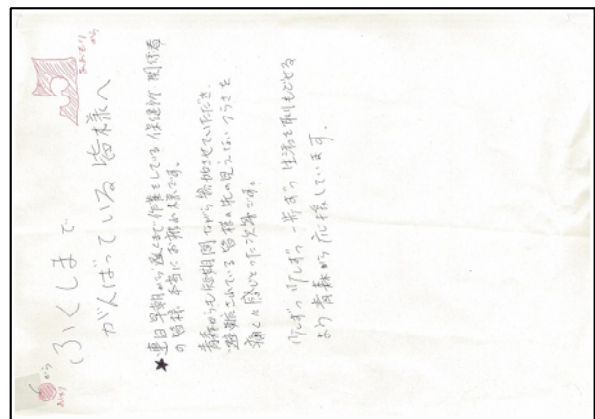 ふくしまで
がんばっている皆様へ
あおもりから
★連日早朝から遅くまで作業をしている保健所・関係者
の皆様、本当にお疲れ様です。
青森からも短期間ながら参加させていただき、
避難されている皆様の先の見えないつらさを
痛いと感じとった次第です。
少しずつ少しずつ一歩ずつ生活を取りもどせる
よう青森から応援しています。
から